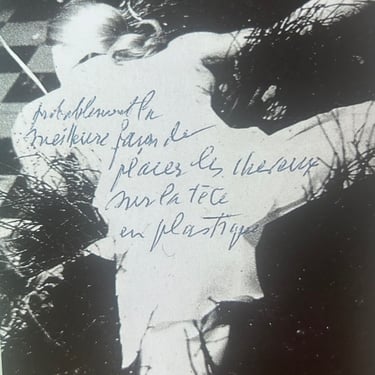 probablement la
meilleure façon de
placer les cheveux
sur la tête
en plastique